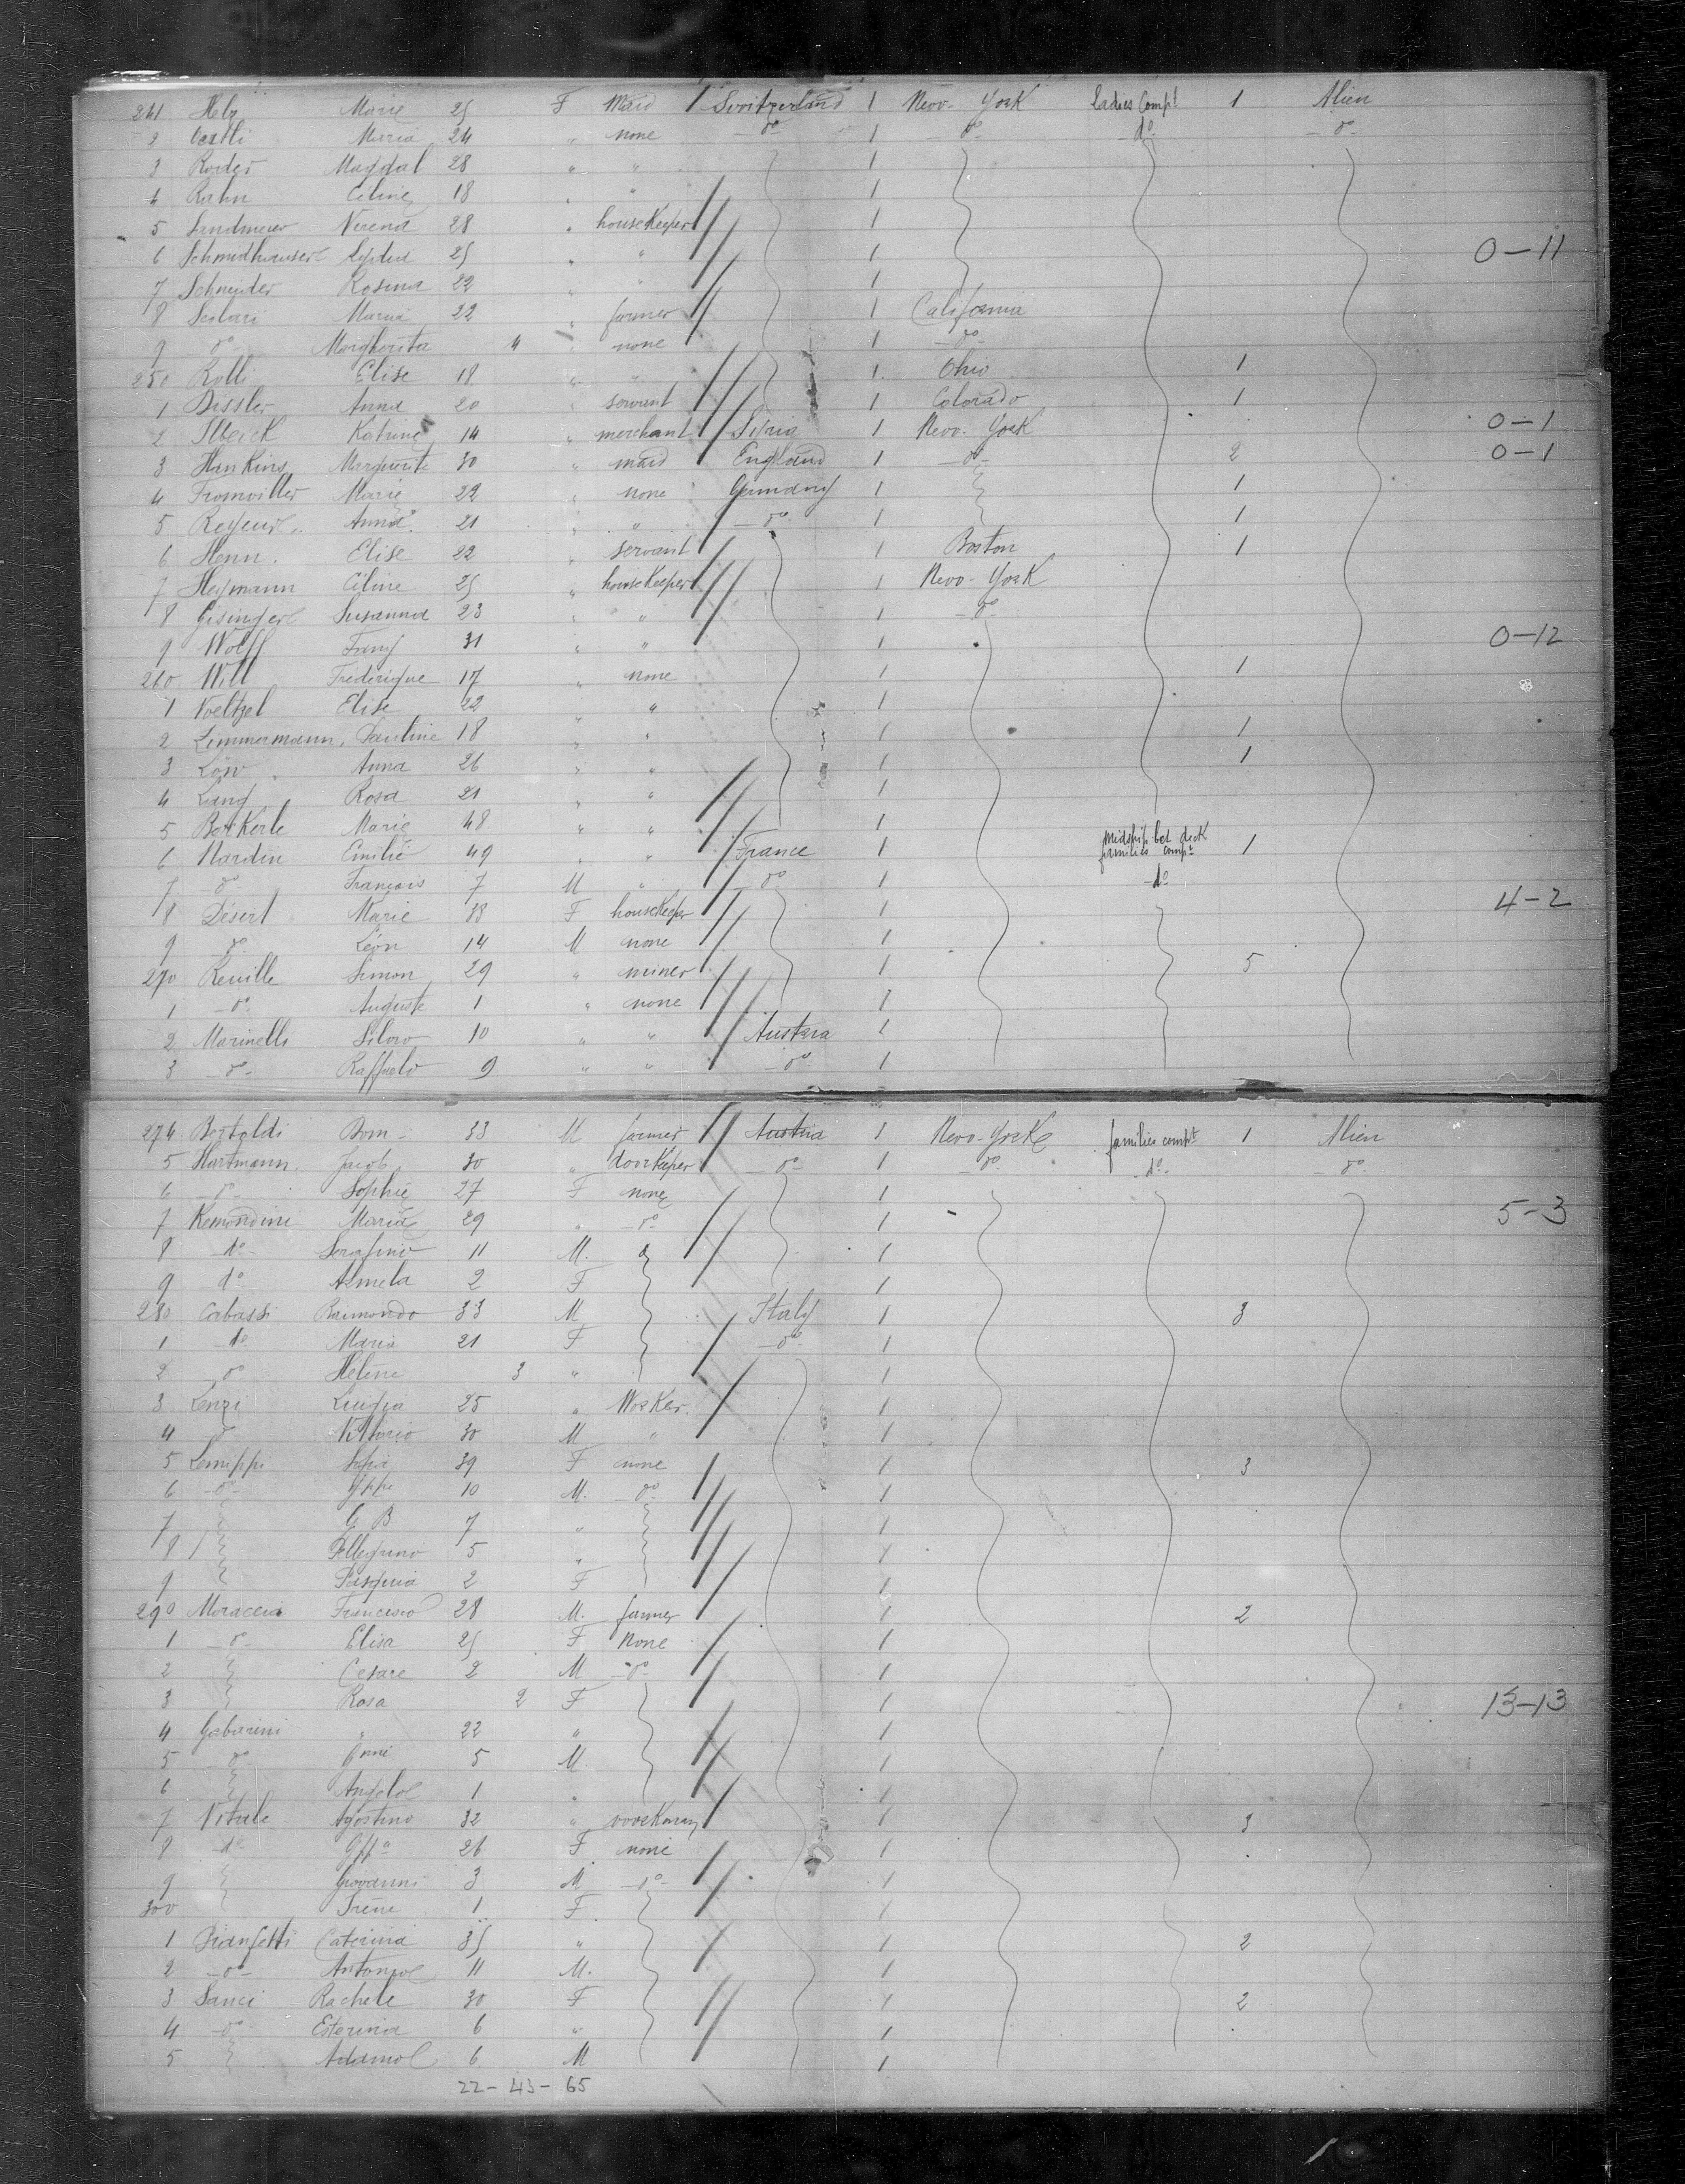 241 Marie 25 F Maid Switzerland 1 New-York Ladies Compt 1 Alien
2 Maria 24 " none -do- 1 -do- -do- -do-
3 Roder Magdal 28 " " 1
4 Rahn Celine 18 " " 1
5 Sandmeier Verena 28 " houseKeeper 1
6 Schmidhauser Lydia 25 " " 1 0-11
7 Schneider Rosina 22 " " 1
8 Scolari Maria 22 " farmer 1 California
9 do Margherita 4 " none 1 -do-
250 Rolli Elise 18 " " 1 Ohio 1
1 Dissler Anna 20 " servant 1 Colorado 1
2 Katrine 14 " merchant 1 New-York 0-1
3 HanKins Marguerite 30 " maid England 1 -do- 2 0-1
4 Fromviller Marie 22 " none Germany 1 1
5 Anna 21 " " -do- 1 1
6 Henn. Elise 22 " servant 1 Boston 1
7 Heymann Céline 25 " houseKeeper 1 New-York
8 Gisinger Susanna 23 " " 1 -do-
9 Wolff Fany 31 " " 1 0-12
260 Will Frederique 17 " none 1 1
1 Voeltzel Elise 22 " 1
2 Zimmermann, Pauline 18 " " 1 1
3 Löw Anna 26 " " 1 1
4 Lang Rosa 21 " " 1
5 Marie 48 " " 1
6 Nardin Emilie 49 " " France 1 midship bet deck families compt 1
7 -do- François 7 M " do 1 -do-
8 Désert Marie 38 F houseKeeper 1 4-2
9 do Léon 14 M none 1
270 Reuille Simon 29 " miner 1 5
1 -do- Auguste 1 " none 1
2 Marinelli Silvio 10 " " Austria 1
3 -do- Raffaelo 9 " " -do- 1
274 Bertoldi Dom- 33 M farmer Austria 1 New-York families compt 1 Alien
5 Hartmann. Jacob 30 " doorKeper -do- 1 -do- -do- -do-
6 -do- Sophie 27 F none 1
7 Remondini Maria 29 " -do- 1 5-3
8 do- Serafino 11 M. 1
9 do- Almela 2 F 1
280 Cabassi Raimondo 33 M Italy 1 3
1 do- Maria 21 F -do- 1
2 do Heline 3 " 1
3 Lenzi Luigia 25 " WorKer. 1
4 Vittorio 30 M " 1
5 39 F none 1 3
6 -do- Gppe 10 M. -do- 1
7 G B 7 " 1
8 Pellegrino 5 " 1
9 Pasquia 2 F 1
290 Moraccia Francesco 28 M. farmer 1 2
1 -do- Elisa 25 F None 1
2 Cesare 2 M -do- 1
3 Rosa 2 F 1 13-13
4 Gabarini " 22 " 1
5 do 5 M. 1
6 Angelo 1 " 1
7 Vitale Agostino 32 " worKman 1 3
8 do- Gppa 26 F none 1
9 Giovanni 3 M -do- 1
300 Irene 1 F. 1
1 Caterina 35 " 1 2
2 -do- Antonio 11 M. 1
3 Sanci Rachele 30 F 1 2
4 -do- Esterina 6 " 1
5 Adamo 6 M 1
22 - 43 - 65